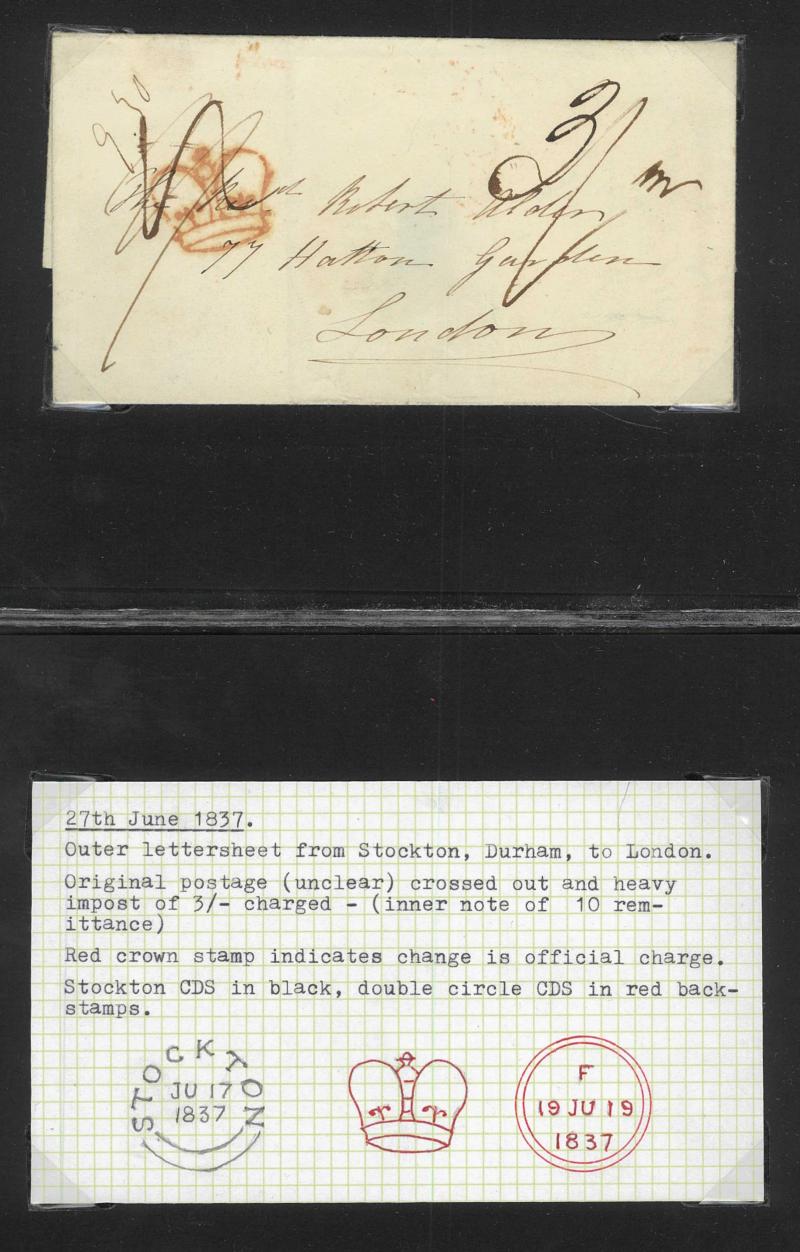 9 30
3/
m
The Revd Robert Alder
77 Hatton Garden
London
27th June 1837.
Outer lettersheet from Stockton, Durham, to London.
Original postage (unclear) crossed out and heavy
impost of 3/- charged - (inner note of 10 rem-
ittance)
Red crown stamp indicates change is official charge.
Stockton CDS in black, double circle CDS in red back-
stamps.
STOCKTON
JU 17
1837
F
19 JU 19
1837